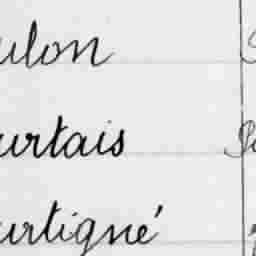 ulon
urtais
urtigné